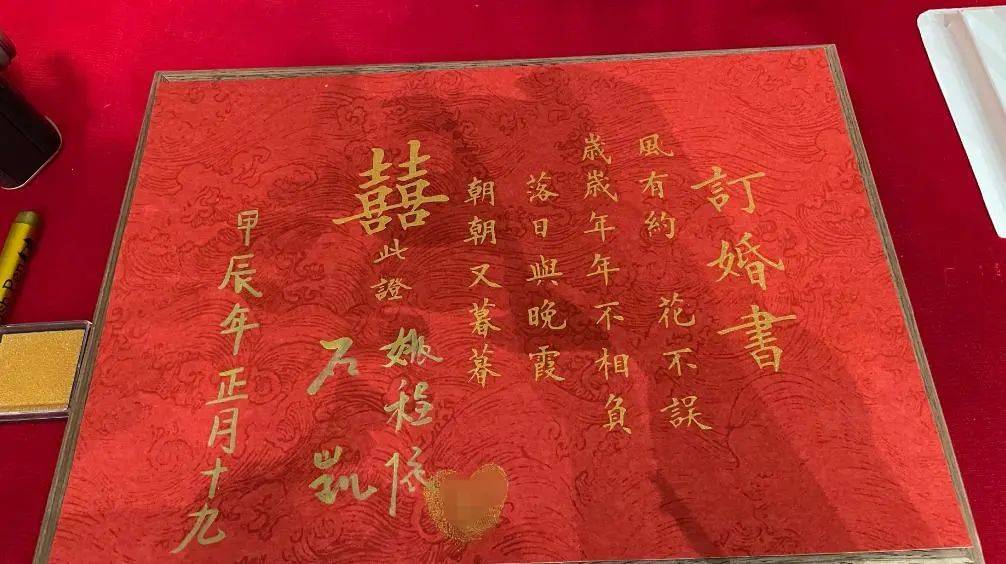 訂婚書
風有約 花不誤
歲歲年年不相負
落日與晚霞
朝朝又暮暮
囍
此證
程依
石凱
甲辰年正月十九